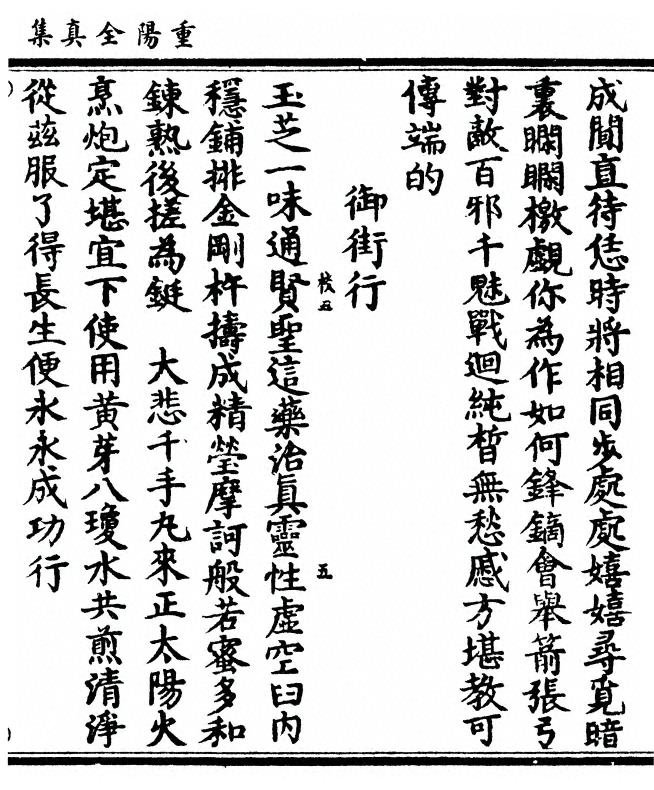 重陽全真集
成聞直待恁時將相同步處處嬉嬉尋覓暗
裏瞯瞯檄覷你為作如何鋒鏑會舉箭張弓
對敵百邪千魅戰迴純晳無愁慼方堪教可
傳端的
御街行
玉芝一味通賢聖這藥治真靈性虛空臼内
穩鋪排金剛杵擣成精瑩摩訶般若蜜多和
鍊熟後搓為鋌　大悲千手丸來正太陽火
烹炮定堪宜下使用黄芽八瓊水共煎清淨
從茲服了得長生便永永成功行
枝五
五